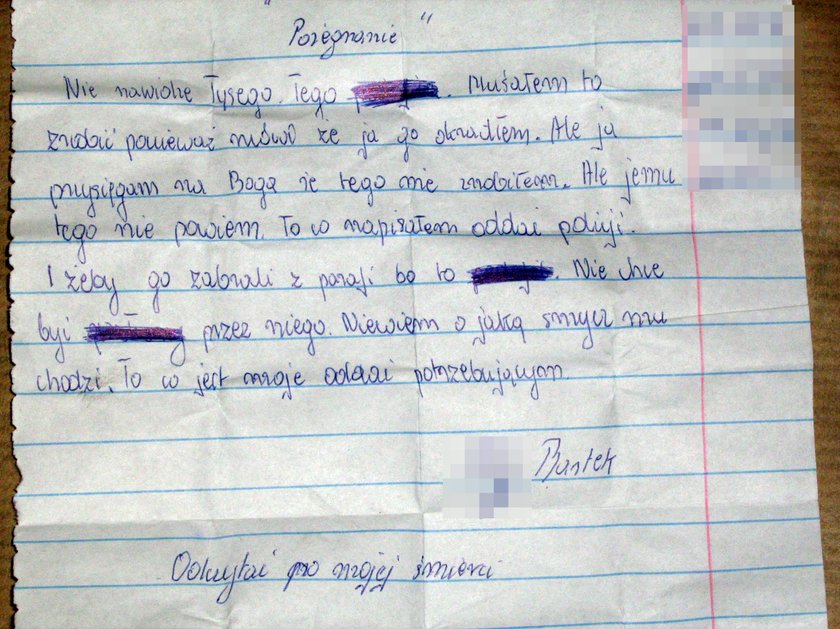 "Porzegnanie"
Nie nawidzę Łysego. Tego . Musiałem to
zrobić ponieważ mówił że ja go okradłem. Ale ja
przysięgam na Boga że tego nie zrobiłem. Ale jemu
tego nie powiem. To co napisałem oddai policji.
I żeby go zabrali z parafi bo to . Nie chce
byi przez niego. Niewiem o jaką smycz mu
chodzi. To co jest moje oddai potrzebującym.
Bartek
Odczytai po mojej śmierci